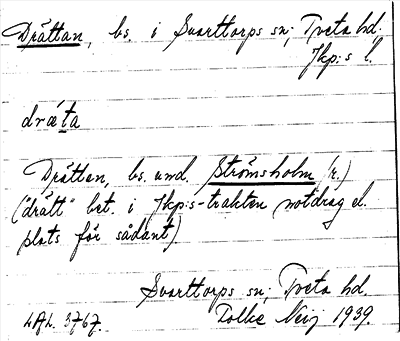 Drättan, bs. i Svarttorps sn; Tveta hd.
Jkp:s l.
dræta
Drättan, bs. und. Strömsholm (r.)
("drätt" bet. i Jkp:s-trakten notdrag el.
plats för sådant)
Svarttorps sn; Tveta hd.
LAL. 3767. 1939.